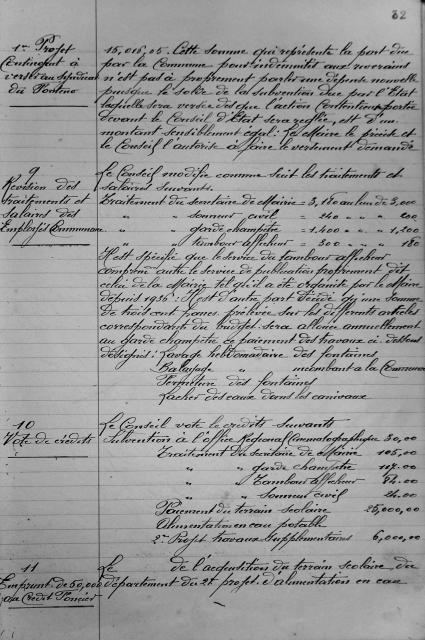 32
1er Projet
Contingent à
verser au syndicat
du Ponteno
15,016,05. Cette somme qui représente la part due
par la Commune pour indemnités aux riverains
n'est pas à proprement parler une dépense nouvelle
puisque le solde de la subvention due par l'Etat
laquelle sera versée dès que l'action Contentieuse portée
devant le Conseil d'Etat sera réglée, est d'un
montant sensiblement égal: Le Maire le précise et
le Conseil l'autorise à faire le versement demandé
9
Révision des
Traitements et
Salaires des
Employés Communaux
Le Conseil modifie comme suit les traitements et
salaires suivants.
Traitement du secrétaire de Mairie = 3,180 au lieu de 3,000
" " sonneur civil = 240 " " 200
" " garde champêtre = 1,400 " " 1,200
" " tambour afficheur = 300 " " 180
Il est spécifié que le service du tambour afficheur
comprend outre le service de publication proprement dit
celui de la Mairie tel qu'il a été organisé par le Maire
depuis 1936: Il est d'autre part décidé qu'une somme
de trois cent francs prélevée sur les différents articles
correspondants du budget sera allouée annuellement
au garde champêtre en paiement des travaux ci-dessous
désignés: Lavage hebdomadaire des fontaines
Balayage " incombant à la Commune
Fermeture des fontaines
Lacher des eaux dans les caniveaux
10
Vote de crédits
Le Conseil vote les crédits suivants
Subvention à l'office Régional Cinématographique 30,00
Traitement du secrétaire de Mairie 105,00
" " garde champêtre 117.00
" " Tambour afficheur 84.00
" " Sonneur civil 24.00
Paiement du terrain scolaire 25,000,00
Alimentation en eau potable
2e Projet travaux supplémentaires 6,000,00
11
Emprunt de 50,000
au Crédit Foncier
Le de l'acquisition du terrain scolaire du
département du 2e projet d'alimentation en eau